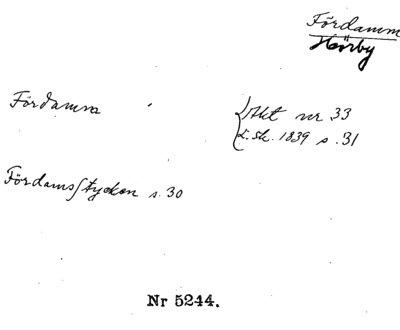 Fördamm
Hörby
Fördamm
Akt nr 33
L. sk. 1839 s. 31
Fördamsstycken s. 30
Nr 5244.